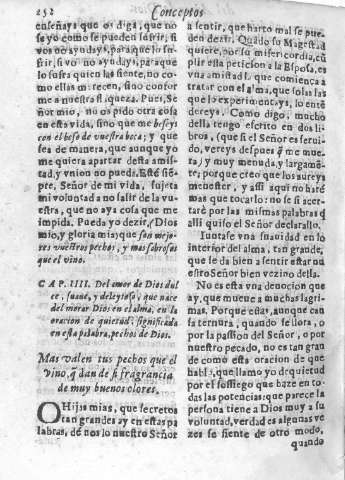 252 Conceptos
enseñays que os diga, que no
se yo como se pueden sufrir, si
vos no ayudays, para que lo su-
frir, si vos no ayudays, para que
lo sufra quien las siente, no co-
mo ellas merecen, sino confor-
me a nuestra flaqueza. Pues, Se
ñor mio, no os pido otra cosa
en esta vida, sino que me beseys
con el beso de vuestra boca; y que
sea de manera, que aunque yo
me quiera apartar desta amis-
tad, y vnion no pueda. Esté siē-
pre, Señor de mi vida, sujeta
mi voluntad a no salir de la vue
stra, que no aya cosa que me
impida. Pueda yo dezir, Dios
mio, y gloria mia; que son mejo-
res vuestros pechos, y mas sabrosos
que el vino.
CAP. IIII. Del amor de Dios dul
ce, suaue, y deleytoso, que nace
del morar Dios en el alma, en la
oracion de quietud, significada
en esta palabra, pechos de Dios.
Mas valen tus pechos que el
vino, q̃ dan de si fragrancia
de muy buenos olores.
O Hijas mias, que secretos
tan grandes ay en estas pa
labras, dé nos lo nuestro Señor
a sentir, que harto mal se pue-
den dezir. Quādo su Magestad
quiere, por su misericordia, cū
plir esta peticion a la Esposa, es
vna amistad la que comiença a
tratar con el alma, que solas las
que lo experimentays, lo ente
dereys. Como digo, mucho
della tengo escrito en dos li-
bros, (que si el Señor es serui-
do, vereys despues q̃ me mue-
ra) y muy menuda, y largamē-
te, porque creo que los aureys
menester, y assi aqui no haré
mas que tocarlo: no se si acer-
taré por las mismas palabras q̃
alli quiso el Señor declarallo.
Iuntase vna suauidad en lo
interior del alma, tan grande,
que se da bien a sentir estar nu
estro Señor bien vezino della.
No es esta vna deuocion que
ay, que mueue a muchas lagri-
mas. Porque estas, aunque cau
sa ternura, quando se llora, o
por la passion del Señor, o por
nuestro pecado, no es tan gran
de como esta oracion de que
hablo, que llamo yo de quietud
por el sossiego que haze en to-
das las potencias: que parece la
persona tiene a Dios muy a su
voluntad, verdad es algunas ve
zes se siente de otro modo,
quando